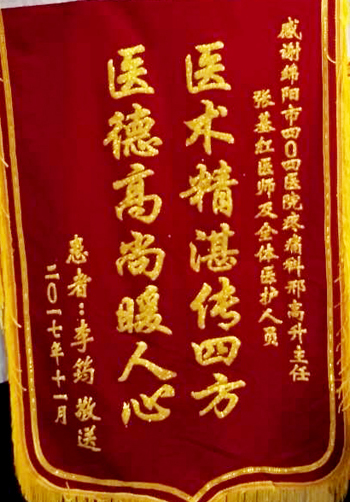 感谢绵阳市四〇四医院疼痛科邢高升主任
张基红医师及全体医护人员
医术精湛传四方
医德高尚暖人心
患者：李筠 敬送
二〇一七年十一月